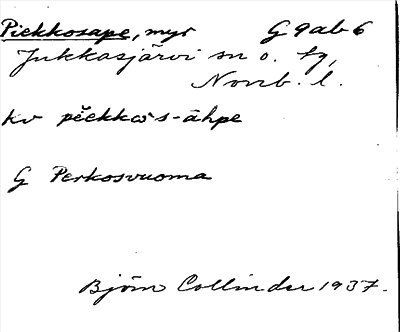 Piekkosape, myr G 9ab6
Jukkasjärvi sn o. tg,
Norrb. l.
kv pĕekkɷs-āhpe
G Perkosvuoma
Björn Collinder 1937.